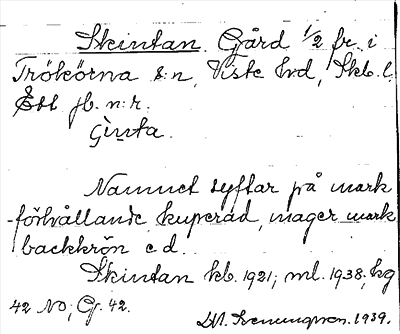 Skintan. Gård 1/2 fr. i
Trökörna s:n, Viste hrd, Skb. l.
Ett jb. n:r.
Namnet syftar på mark-
förhållande, kuperad, mager mark
backkrön e d.
Skintan kb. 1921; ml. 1938; kg
42 NO; Gj. 42.
1939.